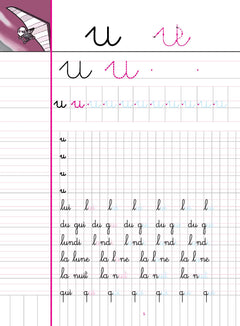 u u
u u
u u
u
u
u
u
lui l l l l l l
du gui du g du g du g du g
lundi l nd l nd l nd l nd
la lune la l ne la l ne la l ne
la nuit la n la n la n
qui q q q q q q